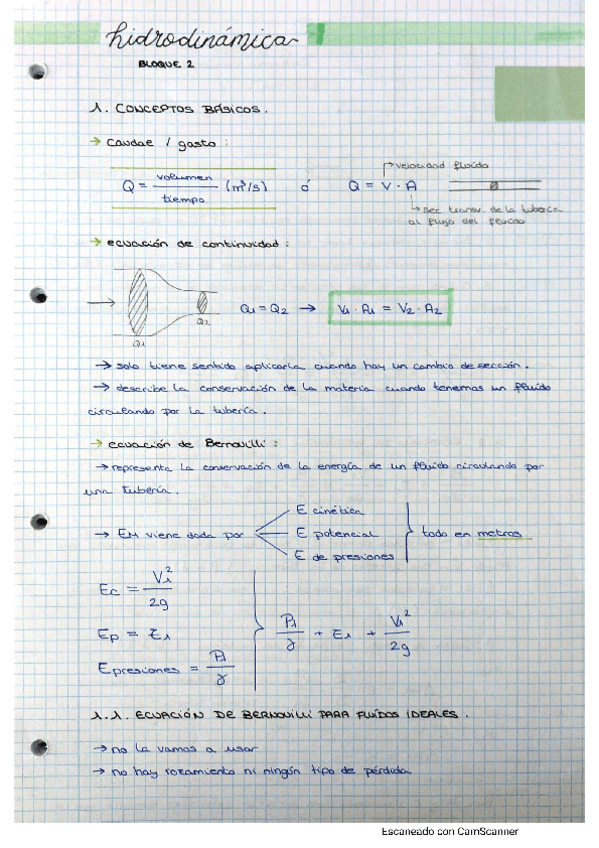 hidrodinámica
BLOQUE 2
1. CONCEPTOS BÁSICOS.
→ caudal / gasto :
Q = volumen / tiempo (m³/s) ó Q = V · A
→ velocidad fluido
→ sec. transv. de la tubería
al flujo del fluido
→ ecuación de continuidad :
Q1 = Q2 → V1 · A1 = V2 · A2
Q1
Q2
→ solo tiene sentido aplicarla cuando hay un cambio de sección.
→ describe la conservación de la materia cuando tenemos un fluido
circulando por la tubería.
→ ecuación de Bernouilli :
→ representa la conservación de la energía de un fluido circulando por
una tubería.
→ EM viene dada por
E cinética
E potencial
E de presiones
todo en metros
Ec = V1² / 2g
Ep = Z1
Epresiones = P1 / γ
P1 / γ + Z1 + V1² / 2g
1.1. ECUACIÓN DE BERNOUILLI PARA FLUÍDOS IDEALES.
→ no la vamos a usar
→ no hay rozamiento ni ningún tipo de pérdida
Escaneado con CamScanner